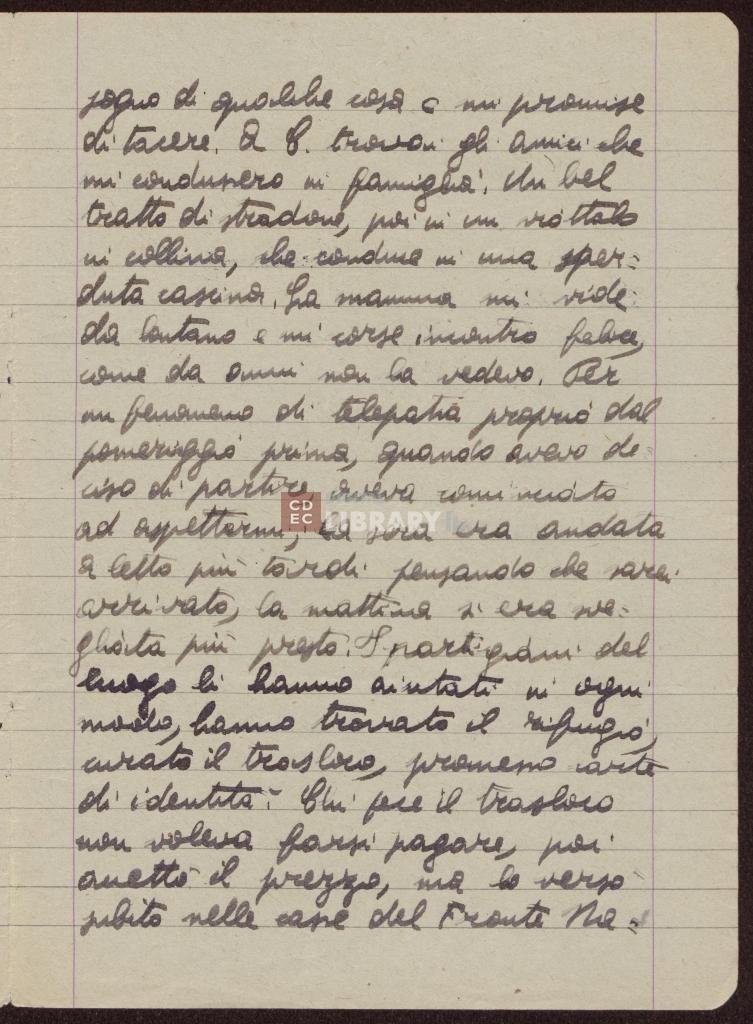 sogno di qualche cosa e mi promise
di tacere. A C. trovai gli amici che
mi condussero in famiglia. Un bel
tratto di stradone, poi in un viottolo
in collina, che conduce in una sper-
duta cascina. La mamma mi vide
da lontano e mi corse incontro felice,
come da anni non la vedevo. Per
un fenomeno di telepatia proprio dal
pomeriggio prima, quando avevo de
ciso di partire, aveva cominciato
ad aspettarmi, la sera era andata
a letto più tardi pensando che sarei
arrivato, la mattina si era sve-
gliata più presto. I partigiani del
luogo li hanno aiutati in ogni
modo, hanno trovato il rifugio,
curato il trasloco, promesso carte
di identità. Chi fece il trasloco
non voleva farsi pagare, poi
accettò il prezzo, ma lo versò
subito nelle casse del Fronte Na-
CDEC LIBRARY